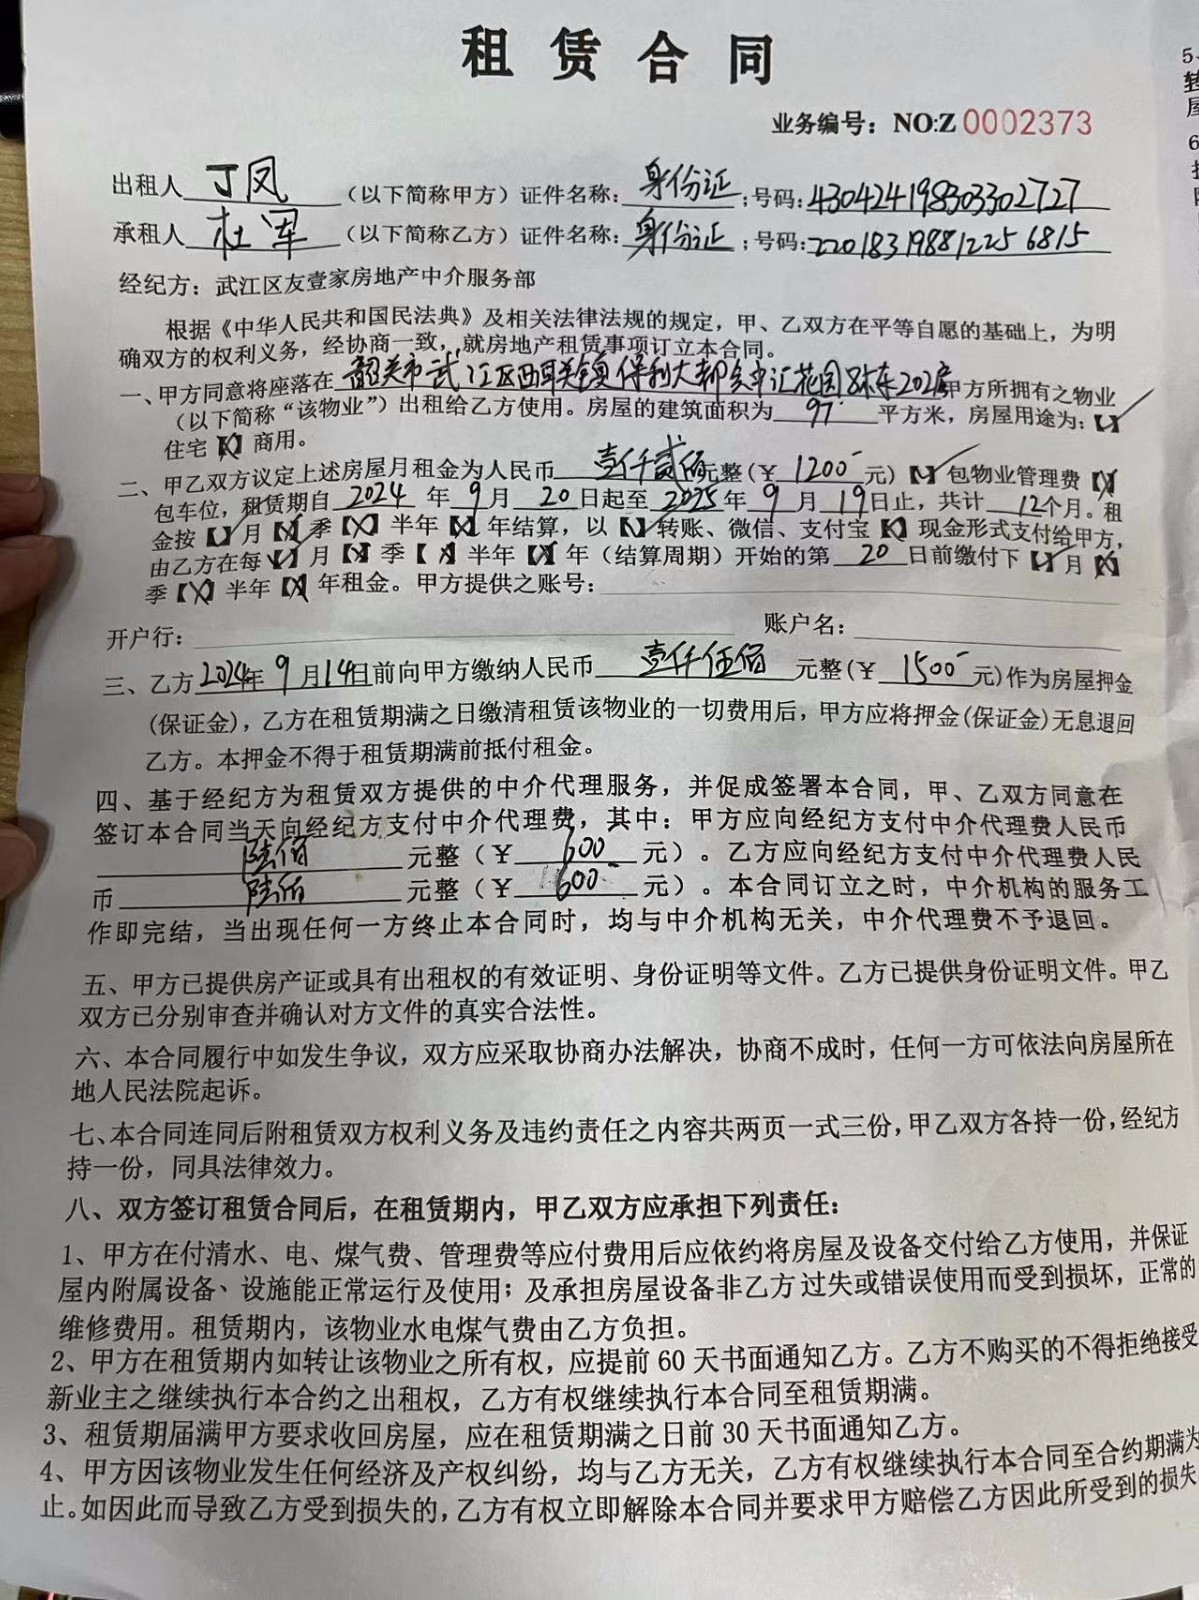 租赁合同
业务编号：NO:Z 0002373
出租人 丁凤 （以下简称甲方）证件名称：身份证；号码：430424198303302727
承租人 杜军 （以下简称乙方）证件名称：身份证；号码：220183198812256815
经纪方：武江区友壹家房地产中介服务部
根据《中华人民共和国民法典》及相关法律法规的规定，甲、乙双方在平等自愿的基础上，为明
确双方的权利义务，经协商一致，就房地产租赁事项订立本合同。
一、甲方同意将座落在 韶关市武江区西联镇保利大都会中汇花园8栋东202房 甲方所拥有之物业
（以下简称“该物业”）出租给乙方使用。房屋的建筑面积为 97 平方米，房屋用途为：【✓】
住宅【X】商用。
二、甲乙双方议定上述房屋月租金为人民币 壹仟贰佰 元整(￥ 1200- 元)【✓】包物业管理费【X】
包车位，租赁期自 2024 年 9 月 20 日起至 2025 年 9 月 19 日止，共计 12 个月。租
金按【✓】月【X】季【X】半年【X】年结算，以【✓】转账、微信、支付宝【X】现金形式支付给甲方，
由乙方在每【✓】月【X】季【X】半年【X】年（结算周期）开始的第 20 日前缴付下【✓】月【X】
季【X】半年【X】年租金。甲方提供之账号：
开户行： 账户名：
三、乙方 2024年 9 月 14 日前向甲方缴纳人民币 壹仟伍佰 元整(￥ 1500- 元)作为房屋押金
(保证金)，乙方在租赁期满之日缴清租赁该物业的一切费用后，甲方应将押金(保证金)无息退回
乙方。本押金不得于租赁期满前抵付租金。
四、基于经纪方为租赁双方提供的中介代理服务，并促成签署本合同，甲、乙双方同意在
签订本合同当天向经纪方支付中介代理费，其中：甲方应向经纪方支付中介代理费人民币
陆佰 元整（￥ 600- 元）。乙方应向经纪方支付中介代理费人民
币 陆佰 元整（￥ 600- 元）。本合同订立之时，中介机构的服务工
作即完结，当出现任何一方终止本合同时，均与中介机构无关，中介代理费不予退回。
五、甲方已提供房产证或具有出租权的有效证明、身份证明等文件。乙方已提供身份证明文件。甲乙
双方已分别审查并确认对方文件的真实合法性。
六、本合同履行中如发生争议，双方应采取协商办法解决，协商不成时，任何一方可依法向房屋所在
地人民法院起诉。
七、本合同连同后附租赁双方权利义务及违约责任之内容共两页一式三份，甲乙双方各持一份，经纪方
持一份，同具法律效力。
八、双方签订租赁合同后，在租赁期内，甲乙双方应承担下列责任：
1、甲方在付清水、电、煤气费、管理费等应付费用后应依约将房屋及设备交付给乙方使用，并保证
屋内附属设备、设施能正常运行及使用；及承担房屋设备非乙方过失或错误使用而受到损坏，正常的
维修费用。租赁期内，该物业水电煤气费由乙方负担。
2、甲方在租赁期内如转让该物业之所有权，应提前 60 天书面通知乙方。乙方不购买的不得拒绝接受
新业主之继续执行本合约之出租权，乙方有权继续执行本合同至租赁期满。
3、租赁期届满甲方要求收回房屋，应在租赁期满之日前 30 天书面通知乙方。
4、甲方因该物业发生任何经济及产权纠纷，均与乙方无关，乙方有权继续执行本合同至合约期满为
止。如因此而导致乙方受到损失的，乙方有权立即解除本合同并要求甲方赔偿乙方因此所受到的损失
5、
转
屋
6